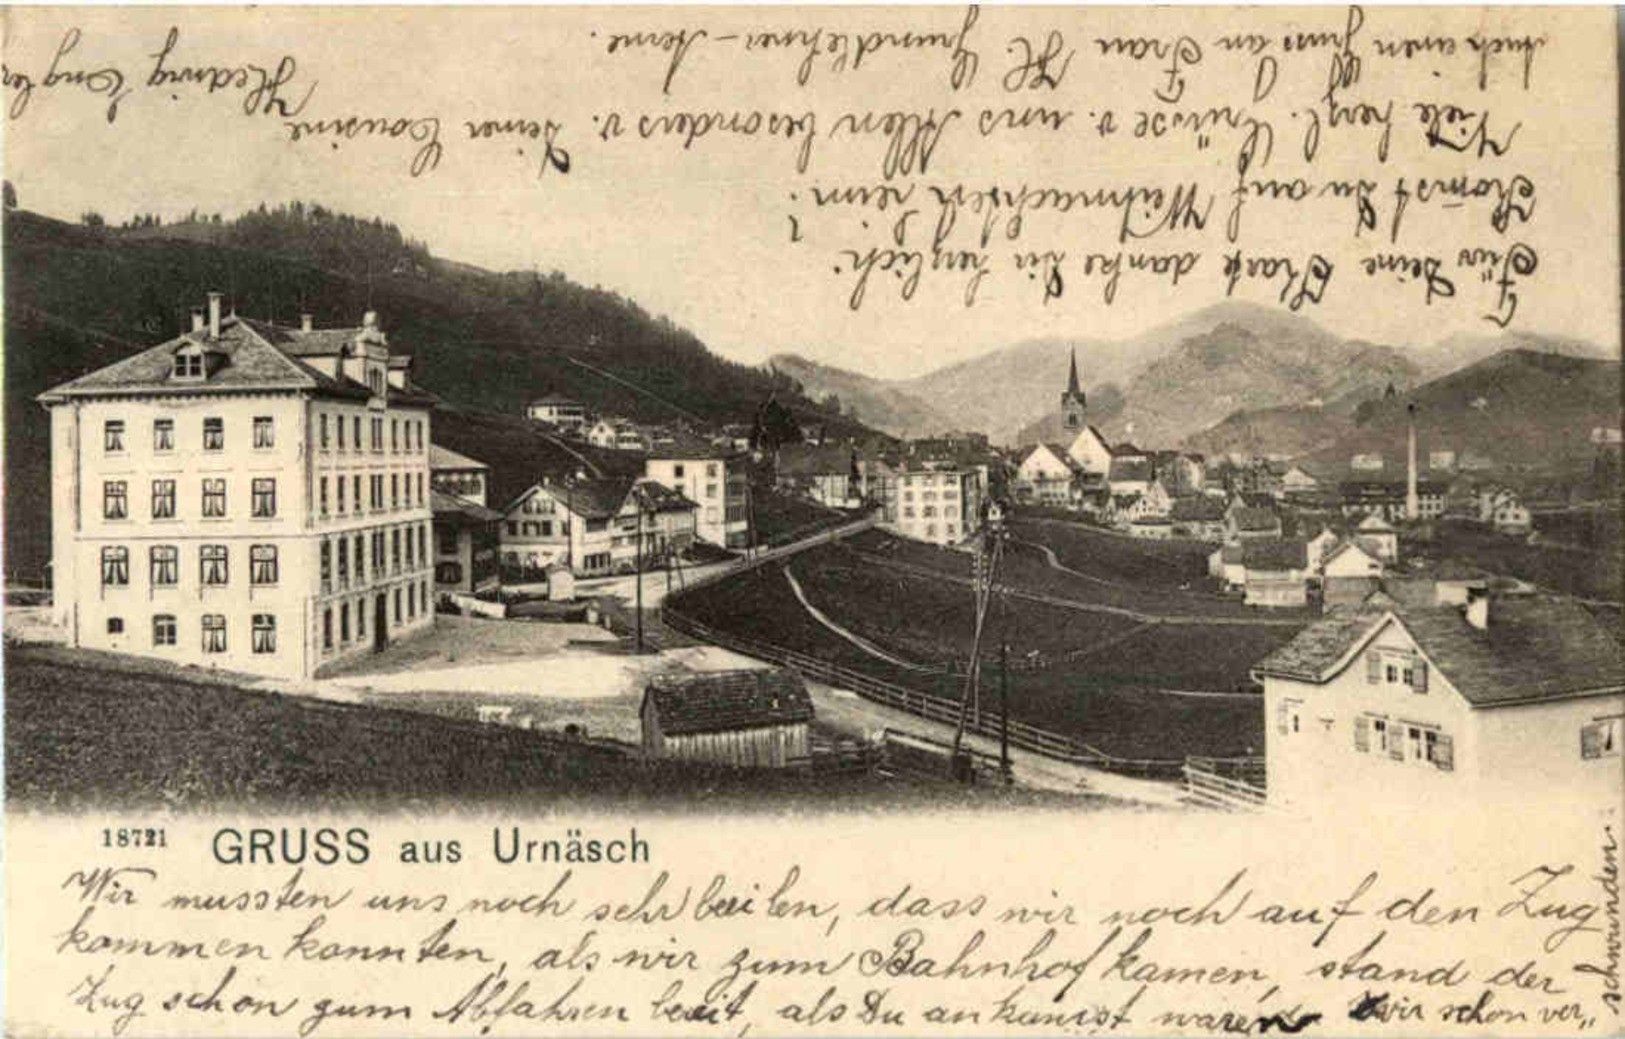 Für Deine Karte danke Dir herzlich.
Komst Du auf Weihnachten heim?
Viele herzl. Grüsse v. uns Allen besonders v. Deiner Cousine
Hedwig Engler
Auch einen Gruss an Frau H. Grundlehner-
18721 GRUSS aus Urnäsch
Wir mussten uns noch sehr beeilen, dass wir noch auf den Zug
kommen konnten, als wir zum Bahnhof kamen, stand der
Zug schon zum Abfahren bereit, als Du ankamst waren wir schon ver„
schwunden.